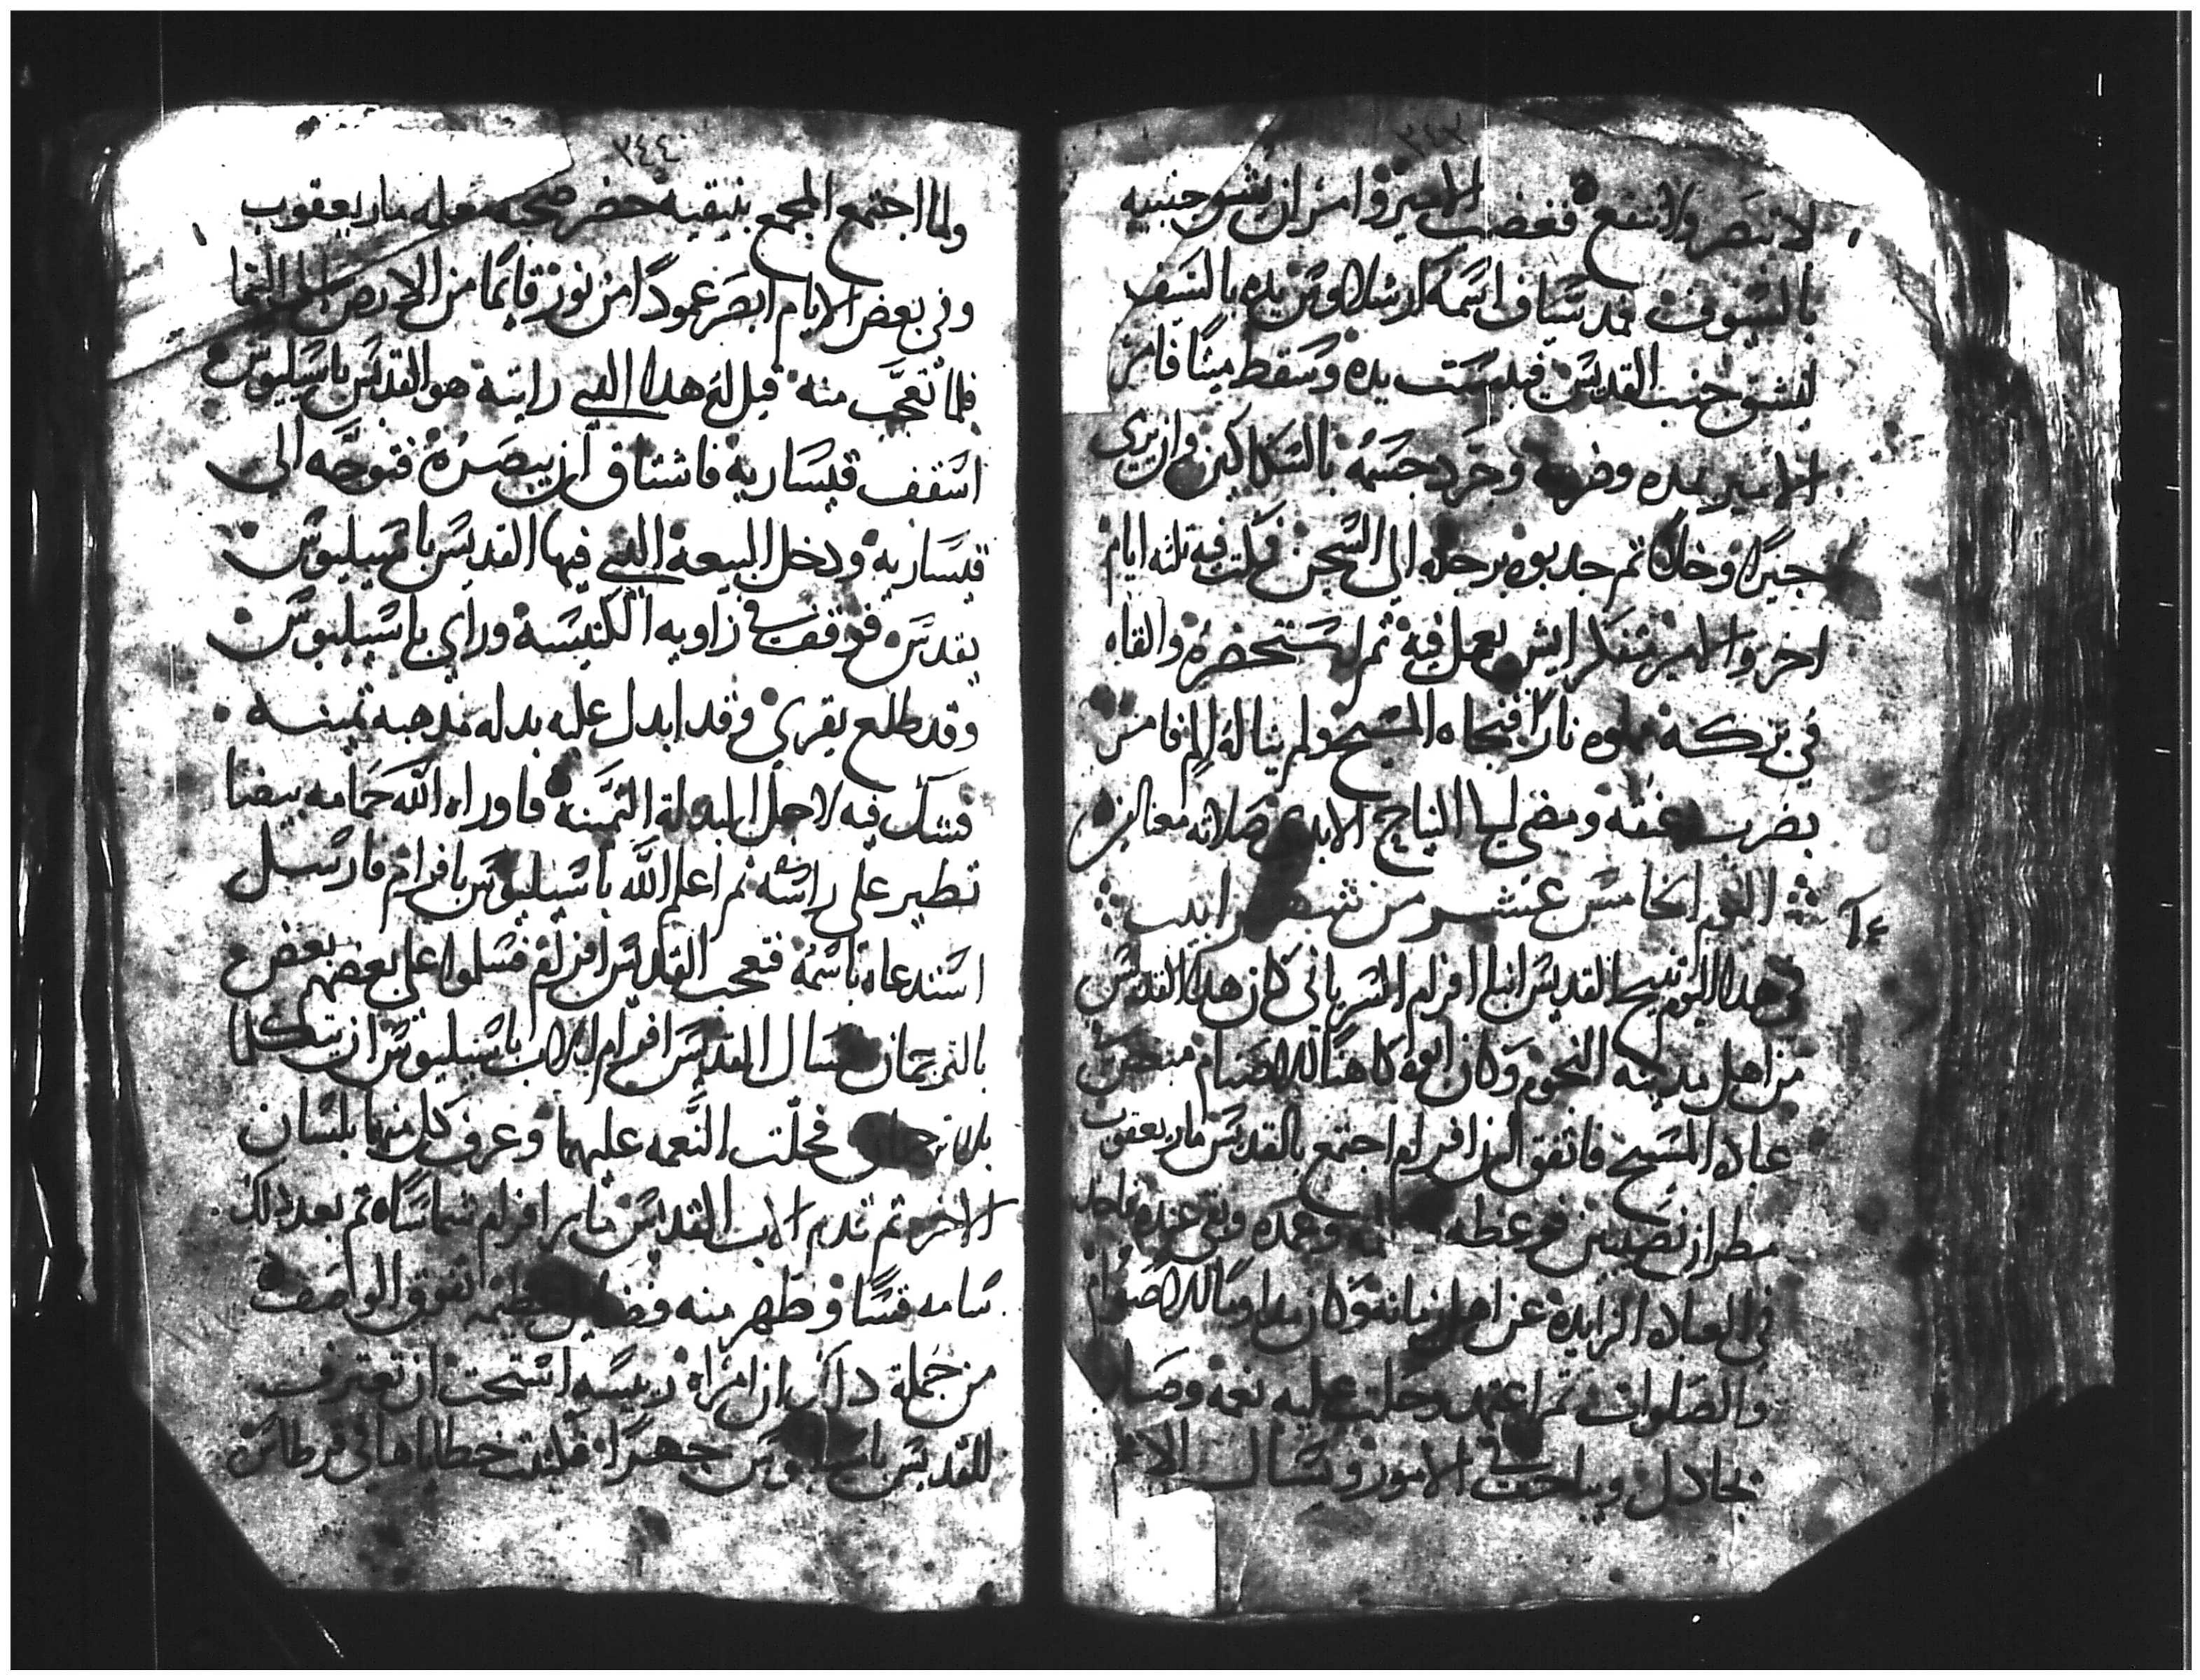 ٣٤٣
لا تنصر ولا تنفع فغضب الامير وامر ان يشو جنبيه
بالسيوف فمد سياف اسمه ارشلاوس يده بالسيف
ليشق جنب القديس فيبست يده وسقط ميتا فامر
الامير وضربه وجرد جسمه بالسكاكين وان يرى
جيرا وخلا ثم جدبوه برجله الى السجن فمكت فيه تلته ايام
اخر والامير متفكر ايش يعمل فيه ثم استحضره والقاه
في بركه مملوه نارا فنجاه المسيح ولم يناله الم فامر
بضرب عنقه ومضى التاج الابدي صلاته معنا امين
اليوم الخامس عشر من شهر ابيب
في هدا اليوم تنيح القديس انبا افرام السرياني كان هدا القديس
من اهل مدينه وكان ابوه كاهنا للاصنام مبغض
عباد المسيح فاتفق ان افرام اجتمع بالقديس مار يعقوب
مطران نصيبين فوعظه وعمده وبقي عنده فاخد
في العباده الزايده عن اهل زمانه وكان مداوما للاصوام
والصلوات ثم اعتمد وحلت عليه نعمه وصار
يجادل ويباحت في الامور ويسال
٣٤٤
ولما اجتمع المجمع بنيقيه حضر صحبه معلمه مار يعقوب
وفي بعض الايام ابصر عمودا من نور قايما من الارض الى السما
فلما تعجب منه قيل له هدا الدي رايته هو القديس باسيليوس
اسقف قيساريه فاشتاق ان يبصره فتوجه الى
قيساريه ودخل البيعه التي فيها القديس باسيليوس
يقدس فوقف في زاويه الكنيسه وراي باسيليوس
وقد طلع يقري وقد ابدل عليه بدله مدهبه تمينه
فشك فيه لاجل البدله التمينه فاوراه الله حمامه بيضا
تطير على راسه ثم اعلم الله باسيليوس بافرام فارسل
استدعاه باسمه فتعجب القديس افرام فسلموا على بعضهم بعض
بالترجمان فسال القديس افرام الاب باسيليوس ان يتكلما
بلا ترجمان فحلت النعمه عليهما وعرف كل منهما بلسان
الاخر ثم قدم الاب القديس مار افرام شماسا ثم بعد دلك
سامه قسا وظهر منه فضايل عظيمه تفوق الواصف
من جملة داك ان امراه ريسه استحت ان تعترف
للقديس باسيليوس جهرا فكتبت خطاياها في قرطاس